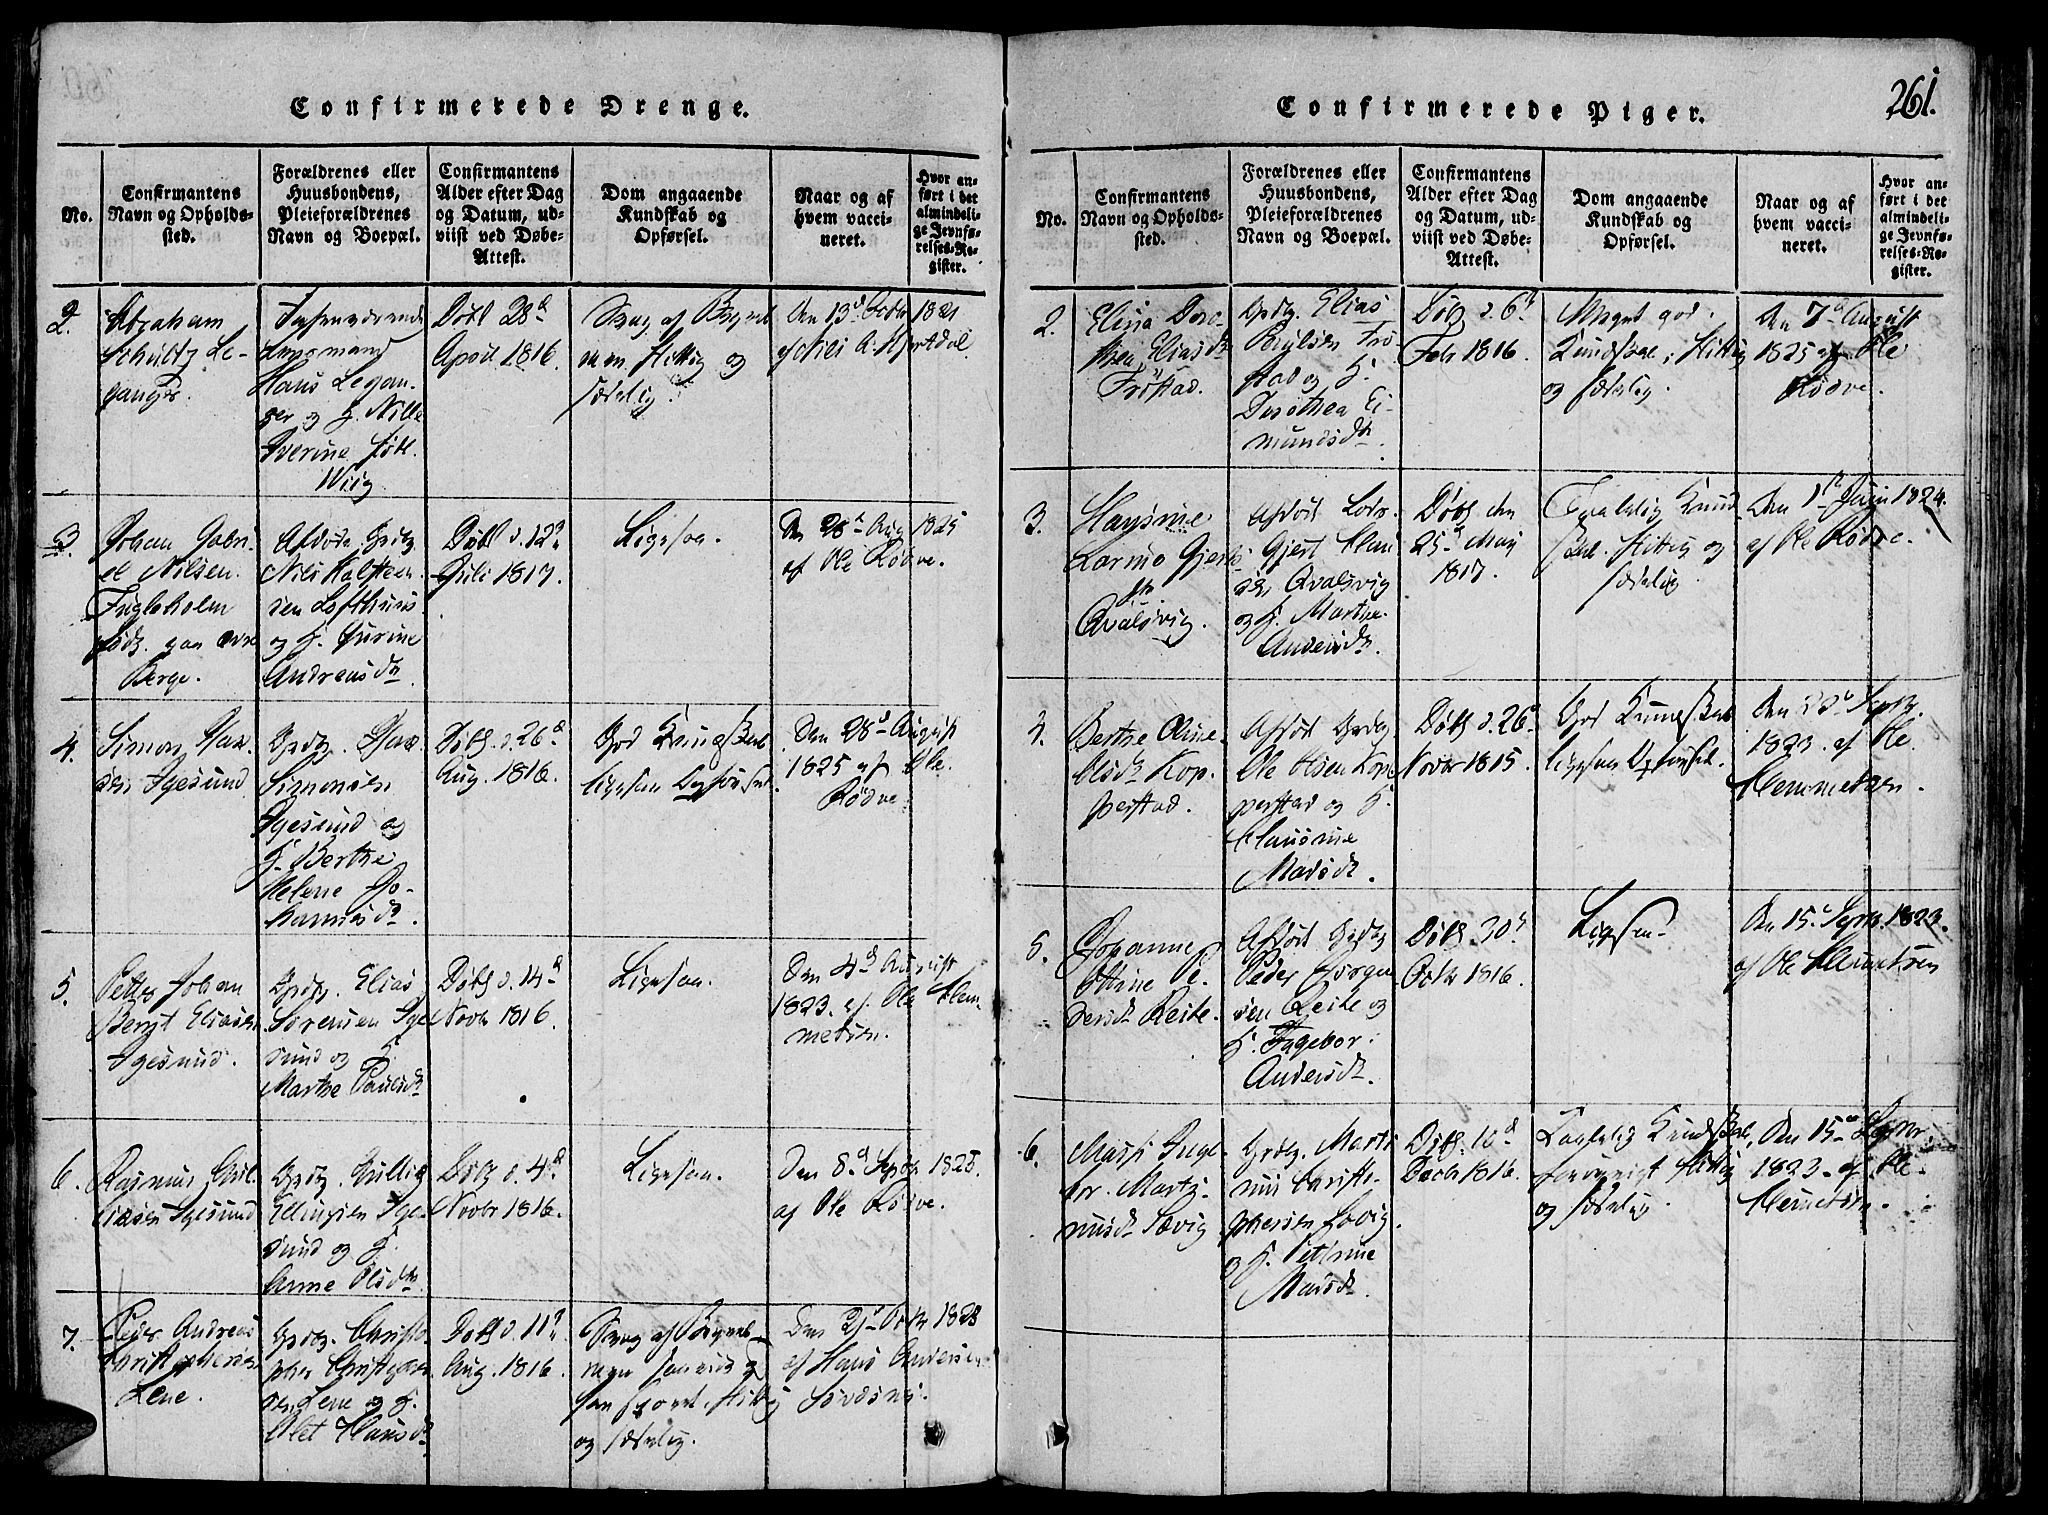 261.
Confirmerede Drenge.
No.
Confirmantens
Navn og Opholds-
sted.
Forældrenes eller
Huusbondens,
Pleieforældrenes
Navn og Boepæl.
Confirmantens
Alder efter Dag
og Datum, ud-
viist ved Døbe-
Attest.
Dom angaaende
Kundskab og
Opførsel.
Naar og af
hvem vacci-
neret.
Hvor an-
ført i det
almindeli-
ge Jevnfø-
relses-Re-
gister.
2.
Abraham
Schultz Le-
ganger
Lensmand
Hans Legan-
ger og H. Nille
Severine født
Wiig
Døbt 28d
April 1816.
Svag af Begreb
men flittig og
sædelig.
Den 13d Octbr 1821
af Nils A. Hjertdal
3
Johan Gabri-
el Nilsen
Fugleholm
Berge.
Afdøde Grdbr.
Nils Halsteen-
sen Lofthuus
og H. Gurine
Andreasdtr
Døbt d. 12d
Juli 1817.
Ligesaa.
Den 28d Aug 1825
af Ole Rødve.
4.
Simon
Igesund
Grdbr.
Simonsen
Igesund og
H. Berthe
Helene Jo-
hannesdtr.
Døbt d. 26d
Aug. 1816.
God Kundskab
ligesaa Opførsel.
Den 28d August
1825 af Ole
Rødve.
5.
Petter Johan
Bernt Eliasen
Igesund.
Grdbr. Elias
Sørensen Ige-
sund og H.
Marthe Paulsdtr
Døbt d. 14d
Novbr 1816.
Ligesaa.
Den 4d August
1823 af Ole Klem-
metsen.
6.
Rasmus Gul-
liksen Igesund
Grdbr. Gullik
Ellingsen Ige-
sund og H.
Anne Olsdtr
Døbt d. 4d
Novbr 1816.
Ligesaa.
Den 8d Septbr 1825.
af Ole Rødve.
7.
Peder Andreas
Christophersen
Lene.
Grdbr. Christo-
pher Christophersen
Lene og H.
Olet Hansdtr
Døbt d. 11d
Aug. 1816
Svag af Begreb
men
flittig
og sædelig.
Den 21d Octbr 1828
af Hans Andersen
Confirmerede Piger.
No.
Confirmantens
Navn og Opholds-
sted.
Forældrenes eller
Huusbondens,
Pleieforældrenes
Navn og Boepæl.
Confirmantens
Alder efter Dag
og Datum, ud-
viist ved Døbe-
Attest.
Dom angaaende
Kundskab og
Opførsel.
Naar og af
hvem vacci-
neret.
Hvor an-
ført i det
almindeli-
ge Jevnfø-
relses-Re-
gister.
2.
Elisa Doro-
thea Eliasdtr
Frøstad.
Grdbr. Elias
Poulsen Frø-
stad og H.
Dorothea Ei-
mundsdtr.
Døbt d. 6t
Febr 1816.
Meget god
Kundskab, flittig
og sædelig.
Den 7d August
1825 af Ole
Rødve.
3.
Hansine
Gjerts-
dtr
Qvalsvig.
Gjert Clau-
sen Qvalsvig
og H. Marthe
Andersdtr.
Døbt den
25d May
1817.
Kund-
skab. flittig og
sædelig
Den 1t Juni 1824.
af Ole Rødve.
4.
Berthe Oline
Olsdtr Kop-
perstad.
Afdød Grdbr
Ole Olsen Kop-
perstad og H.
Clausine
Madsdtr.
Døbt d. 26d
Novbr 1815.
God Kundskab
ligesaa Opførsel.
Den Septbr.
1823. af Ole
Klemmetsen.
5.
Johanne
Ottine Pe-
dersdtr Reite.
Afdød Grdbr
Peder Jørgen-
sen Reite og
H. Ingebor
Andersdtr.
Døbt 30d
Octbr 1816.
Ligesaa.
Den 15d Septbr. 1823.
af Ole Klemetsen
6.
Massi Inge-
bor Marti-
nusdtr Sævig
Grdbr. Marti-
nus Christo-
phersen Sævig
og H. Petrine
Madsdtr.
Døbt 10d
Decbr 1816.
Kundskab,
forøvrigt flittig
og sædelig.
Den 15d Septbr
1823. af Ole
Klemetsen.